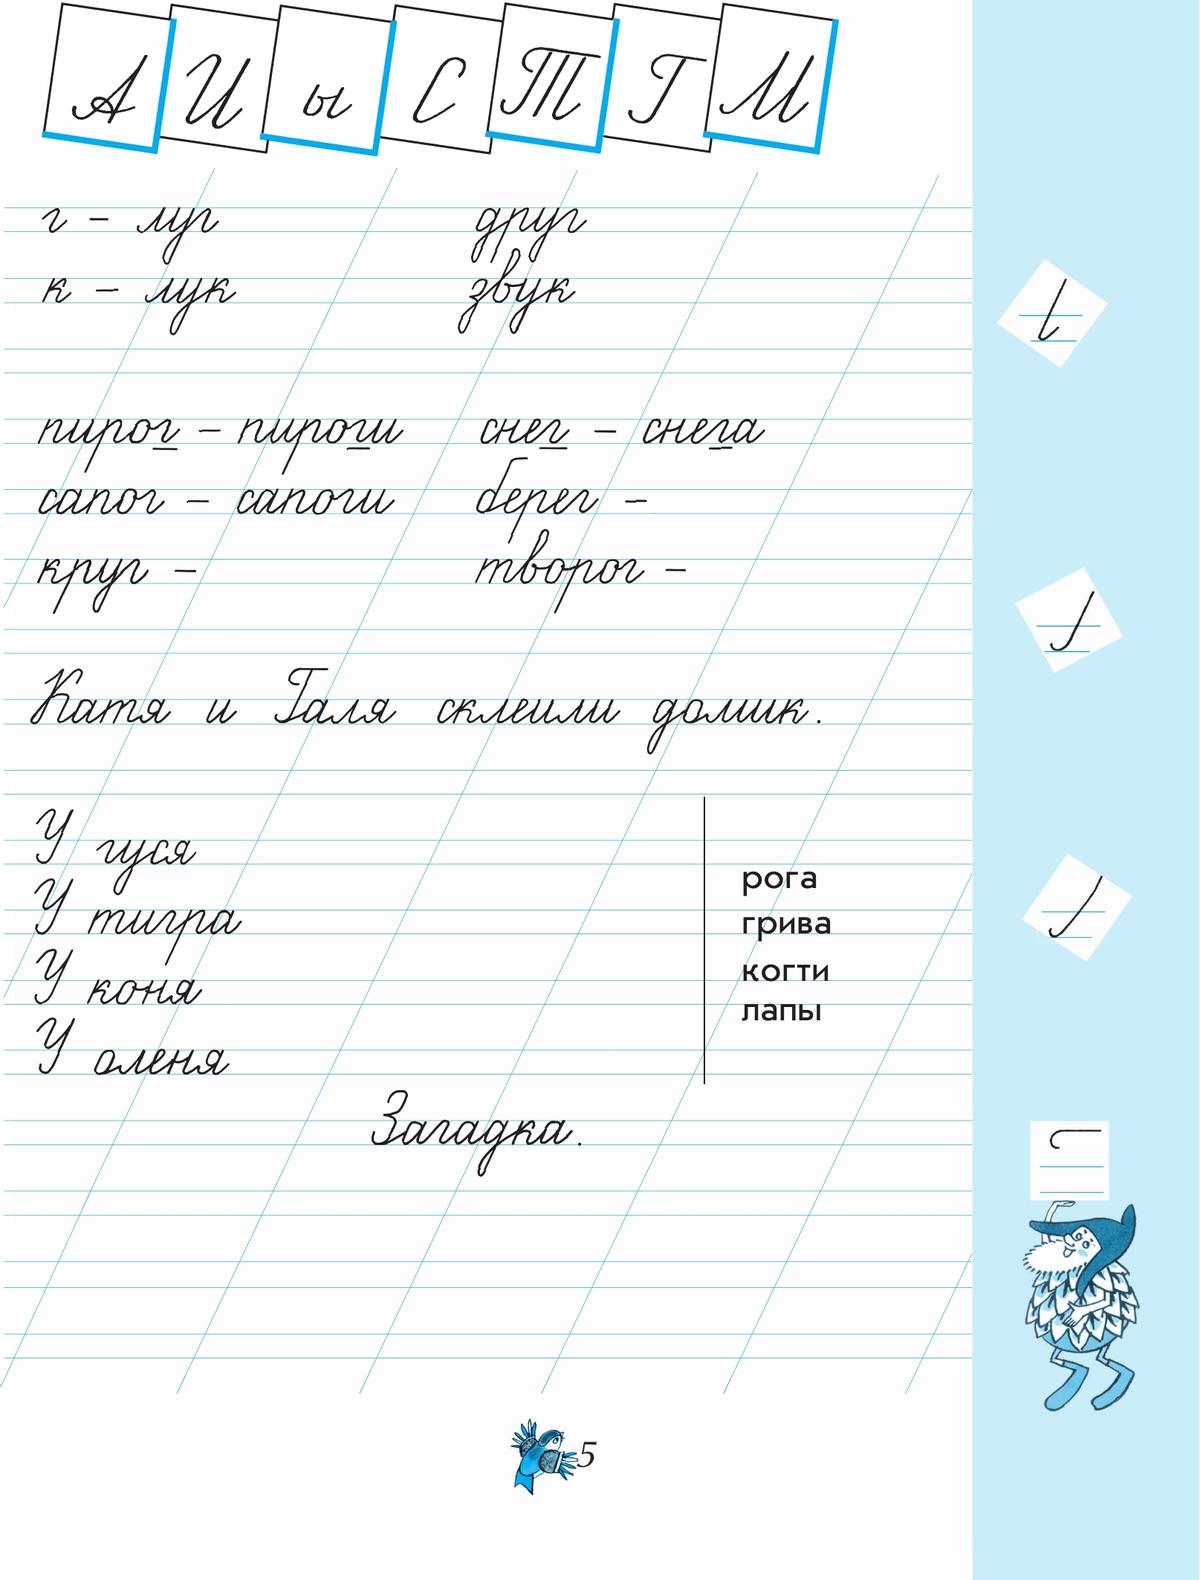 А И ы С Т Г М
г – луг друг
к – лук звук
пирог – пироги снег – снега
сапог – сапоги берег –
круг – творог –
Катя и Галя склеили домик.
У гуся
У тигра
У коня
У оленя
рога
грива
когти
лапы
Загадка.
5